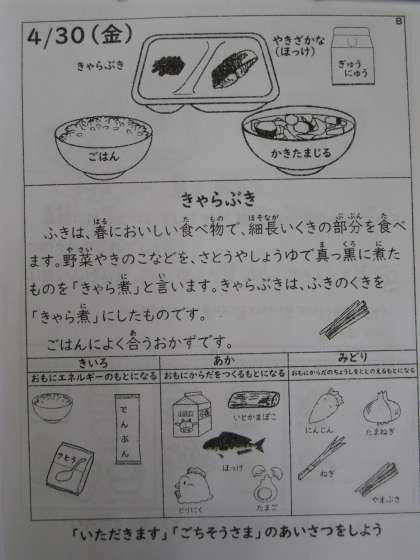 8
4/30(金)
きゃらぶき
やきざかな
(ほっけ)
ぎゅう
にゅう
ごはん
かきたまじる
きゃらぶき
ふきは、春においしい食べ物で、細長いくきの部分を食べ
ます。野菜やきのこなどを、さとうやしょうゆで真っ黒に煮た
ものを「きゃら煮」と言います。きゃらぶきは、ふきのくきを
「きゃら煮」にしたものです。
ごはんによく合うおかずです。
きいろ
おもにエネルギーのもとになる
でんぷん
あか
おもにからだをつくるもとになる
いとかまぼこ
ほっけ
とりにく
たまご
みどり
おもにからだのちょうしをととのえるもとになる
にんじん
たまねぎ
ねぎ
やまぶき
「いただきます」「ごちそうさま」のあいさつをしよう